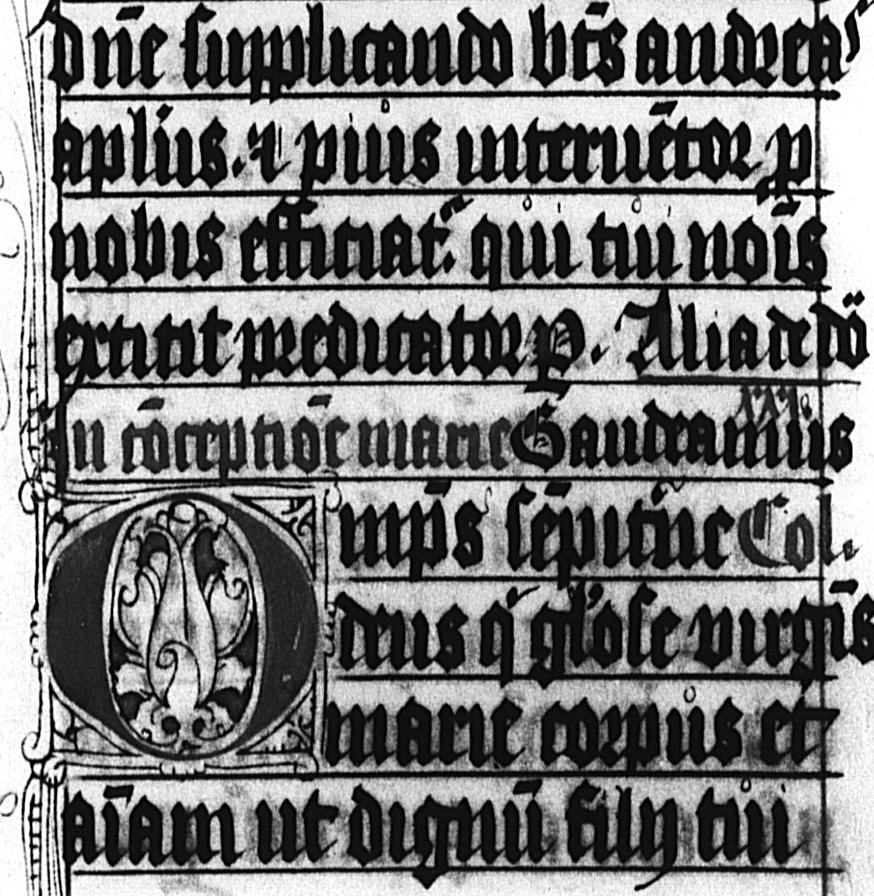 dn̄e supplicando bt̄s andreas
apl̄us. ⁊ pius interuētor p
nobis efficiat᷑. qui tui noīs
extitit predicator p̄. Alia de dō
In cōceptiōe marie Gaudeamus xxx.
Omp̄s sēpit̄ne Col.
deus q' gl'ose virgīs
marie corpus et
aīam ut dignū filij tui